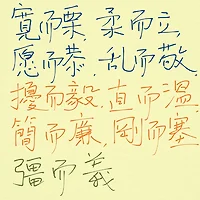 寬而栗,柔而立,
愿而恭,乱而敬,
擾而毅,直而溫,
簡而廉,剛而塞,
彊而義